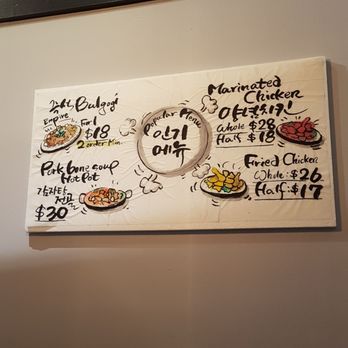 Bulgogi
Empire
For 1
$18
2 order Min.
Pork bone soup
Hot Pot
감자탕
전골
$30
Popular Menu
인기
메뉴
Marinated
Chicken
양념치킨
Whole $28
Half $18
Fried Chicken
Whole: $26
Half: $17